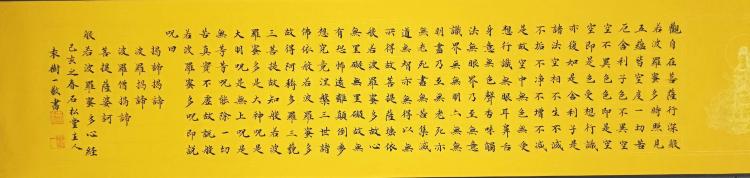 觀自在菩薩行深般
若波羅蜜多時照見
五蘊皆空度一切苦
厄舍利子色不異空
空不異色色即是空
空即是色受想行識
亦復如是舍利子是
諸法空相不生不滅
不垢不淨不增不減
是故空中無色無受
想行識無眼耳鼻舌
身意無色聲香味觸
法無眼界乃至無意
識界無無明亦無無
明盡乃至無老死亦
無老死盡無苦集滅
道無智亦無得以無
所得故菩提薩埵依
般若波羅蜜多故心
無罣礙無罣礙故無
有恐怖遠離顛倒夢
想究竟涅槃三世諸
佛依般若波羅蜜多
故得阿耨多羅三藐
三菩提故知般若波
羅蜜多是大神呪是
大明呪是無上呪是
無等等呪能除一切
苦真實不虛故說般
若波羅蜜多呪即說
呪曰
揭諦揭諦
波羅揭諦
波羅僧揭諦
菩提薩婆訶
般若波羅蜜多心經
己亥之春石松堂主人
袁樹一敬書